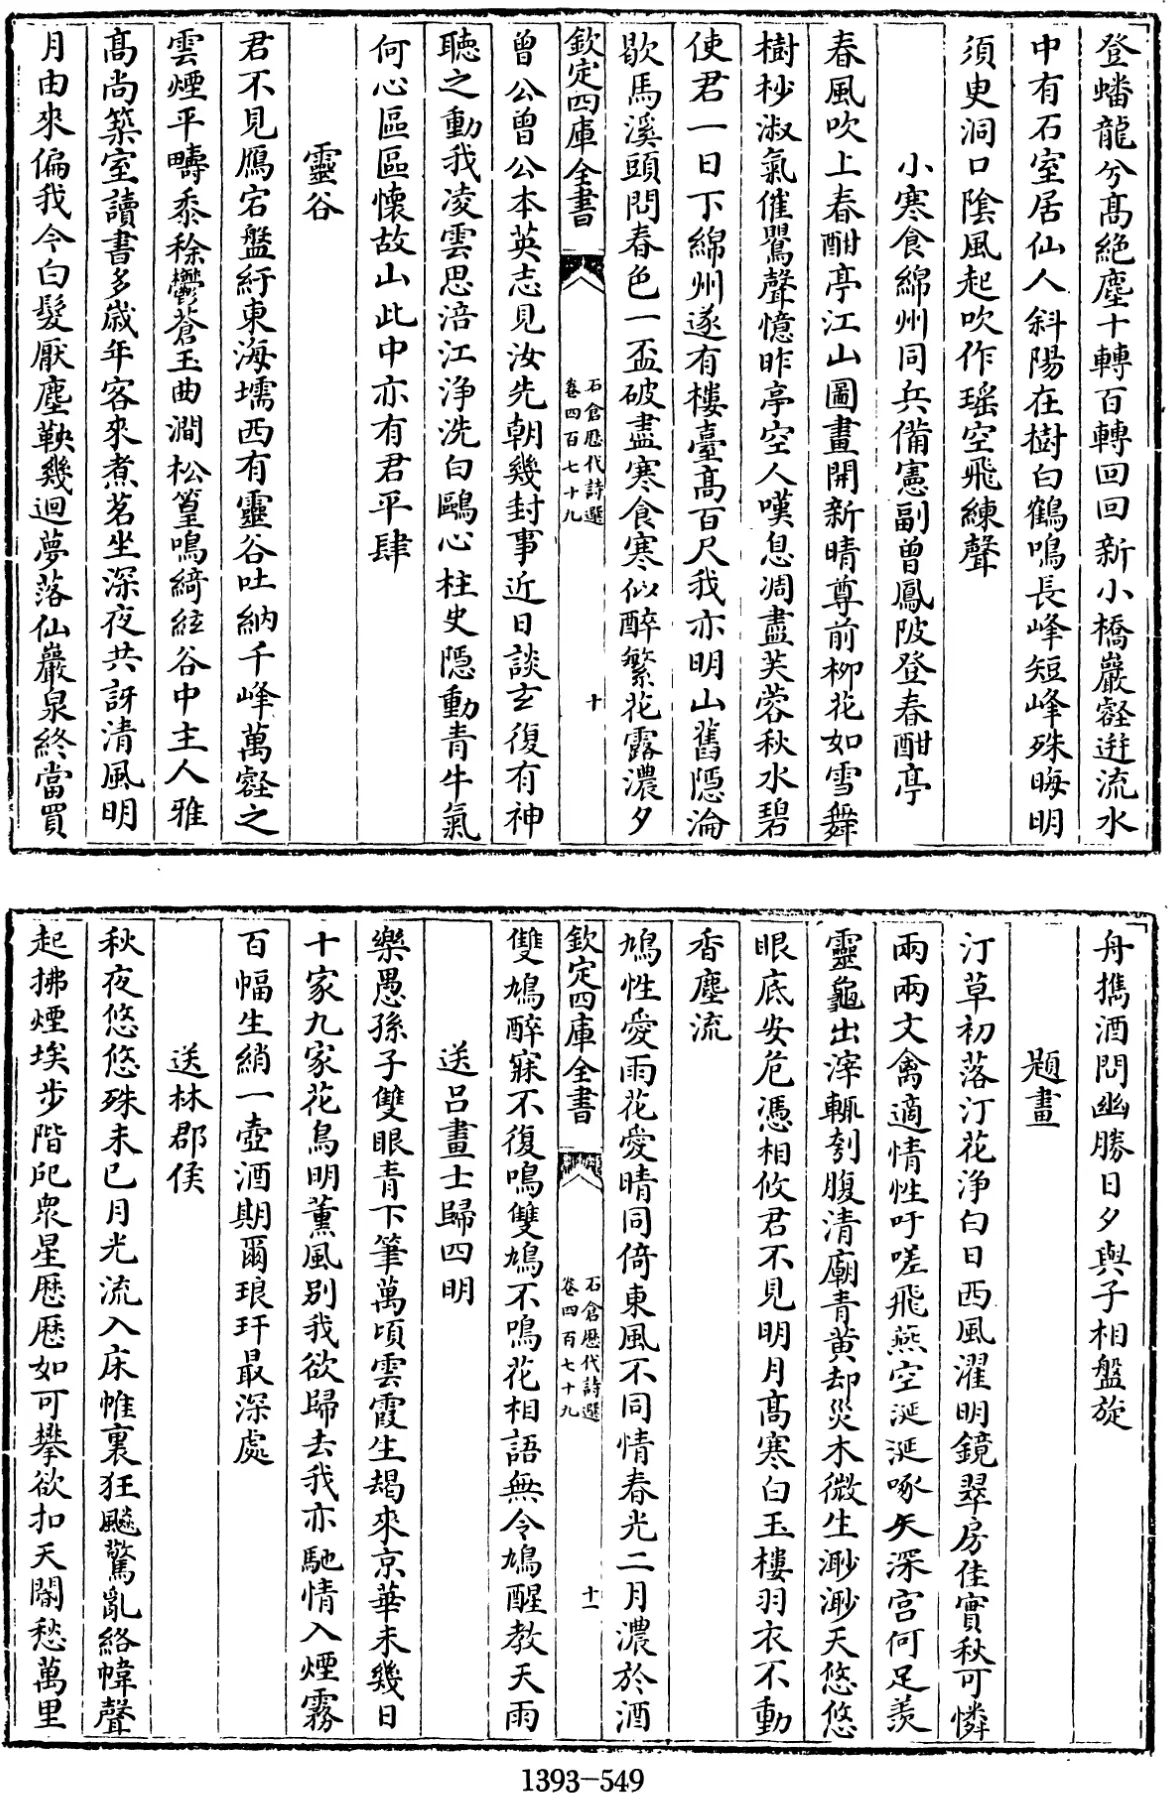 登蟠龍兮髙絶塵十轉百轉回回新小橋巖壑逝流水
中有石室居仙人斜陽在樹白鶴鳴長峰短峰殊晦明
須臾洞口陰風起吹作瑶空飛練聲
小寒食綿州同兵備憲副曾鳳陂登春酣亭
春風吹上春酣亭江山圖畫開新晴尊前栁花如雪舞
樹杪淑氣催鸎聲憶昨亭空人嘆息凋盡芙蓉秋水碧
使君一日下綿州遂有樓臺髙百尺我亦明山舊隠淪
歇馬溪頭問春色一盃破盡寒食寒似醉繁花露濃夕
欽定四庫全書
石倉歷代詩選
卷四百七十九
十
曾公曾公本英志見汝先朝幾封事近日談玄復有神
聽之動我凌雲思涪江浄洗白鷗心柱史隠動青牛氣
何心區區懷故山此中亦有君平肆
靈谷
君不見鴈宕盤紆東海壖西有靈谷吐納千峰萬壑之
雲煙平疇黍稌鬱蒼玉曲澗松篁鳴綺絃谷中主人雅
髙尚築室讀書多歳年客來煮茗坐深夜共訝清風明
月由來偏我今白髮厭塵鞅幾迴夢落仙巖泉終當買
舟携酒問幽勝日夕與子相盤旋
題畫
汀草初落汀花浄白日西風濯明鏡翠房佳實秋可憐
兩兩文禽適情性吁嗟飛燕空涎涎啄矢深宫何足羡
靈龜出滓輒刳腹清廟青黄却災木微生渺渺天悠悠
眼底安危憑相攸君不見明月髙寒白玉樓羽衣不動
香塵流
鳩性愛雨花愛晴同倚東風不同情春光二月濃於酒
欽定四庫全書
石倉歷代詩選
卷四百七十九
十一
雙鳩醉寐不復鳴雙鳩不鳴花相語無令鳩醒教天雨
送吕畫士歸四明
樂愚孫子雙眼青下筆萬頃雲霞生朅來京華未幾日
十家九家花鳥明薰風别我欲歸去我亦馳情入煙霧
百幅生綃一壺酒期爾琅玕最深處
送林郡侯
秋夜悠悠殊未已月光流入床帷裏狂飈驚亂絡幃聲
起拂煙埃步階戺衆星歷歷如可攀欲扣天閽愁萬里
1393-549